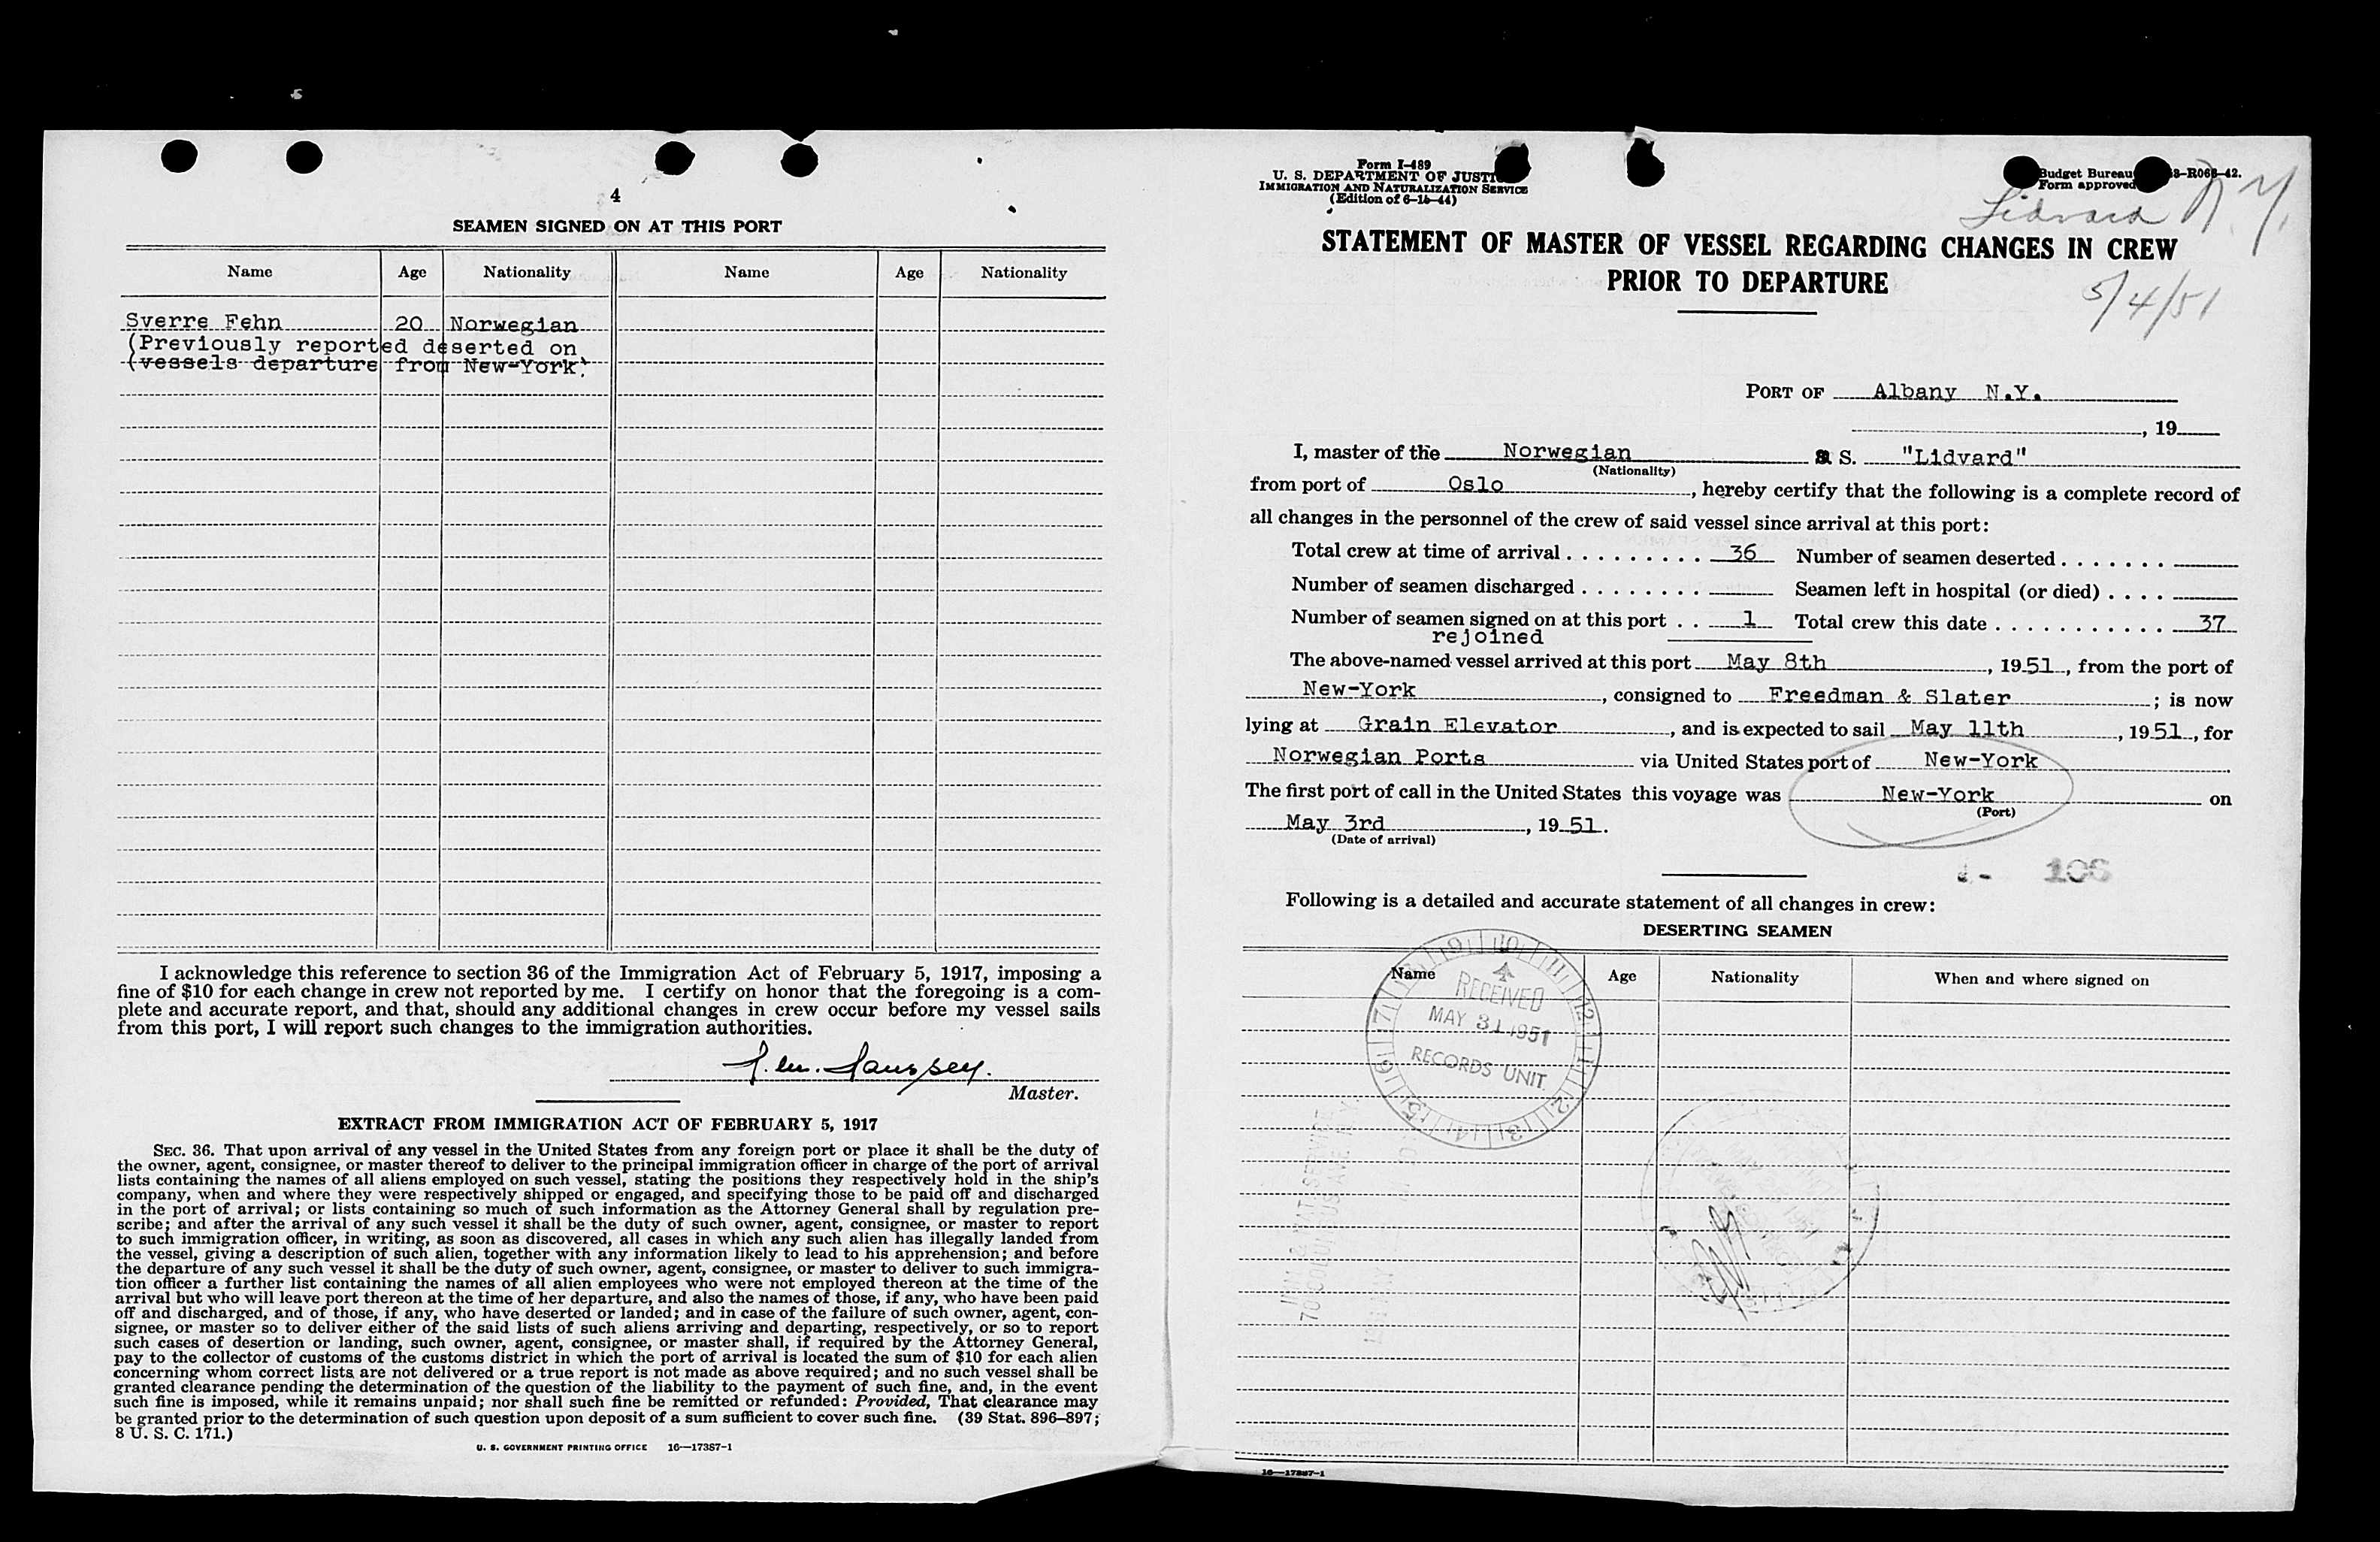 4
SEAMEN SIGNED ON AT THIS PORT
Name Age Nationality Name Age Nationality
Sverre Fehn 20 Norwegian
(Previously reported deserted on
(vessels departure from New-York)
I acknowledge this reference to section 36 of the Immigration Act of February 5, 1917, imposing a
fine of $10 for each change in crew not reported by me. I certify on honor that the foregoing is a com-
plete and accurate report, and that, should any additional changes in crew occur before my vessel sails
from this port, I will report such changes to the immigration authorities.
Master.
EXTRACT FROM IMMIGRATION ACT OF FEBRUARY 5, 1917
SEC. 36. That upon arrival of any vessel in the United States from any foreign port or place it shall be the duty of
the owner, agent, consignee, or master thereof to deliver to the principal immigration officer in charge of the port of arrival
lists containing the names of all aliens employed on such vessel, stating the positions they respectively hold in the ship's
company, when and where they were respectively shipped or engaged, and specifying those to be paid off and discharged
in the port of arrival; or lists containing so much of such information as the Attorney General shall by regulation pre-
scribe; and after the arrival of any such vessel it shall be the duty of such owner, agent, consignee, or master to report
to such immigration officer, in writing, as soon as discovered, all cases in which any such alien has illegally landed from
the vessel, giving a description of such alien, together with any information likely to lead to his apprehension; and before
the departure of any such vessel it shall be the duty of such owner, agent, consignee, or master to deliver to such immigra-
tion officer a further list containing the names of all alien employees who were not employed thereon at the time of the
arrival but who will leave port thereon at the time of her departure, and also the names of those, if any, who have been paid
off and discharged, and of those, if any, who have deserted or landed; and in case of the failure of such owner, agent, con-
signee, or master so to deliver either of the said lists of such aliens arriving and departing, respectively, or so to report
such cases of desertion or landing, such owner, agent, consignee, or master shall, if required by the Attorney General,
pay to the collector of customs of the customs district in which the port of arrival is located the sum of $10 for each alien
concerning whom correct lists are not delivered or a true report is not made as above required; and no such vessel shall be
granted clearance pending the determination of the question of the liability to the payment of such fine, and, in the event
such fine is imposed, while it remains unpaid; nor shall such fine be remitted or refunded: Provided, That clearance may
be granted prior to the determination of such question upon deposit of a sum sufficient to cover such fine. (39 Stat. 896–897;
8 U. S. C. 171.)
U. S. GOVERNMENT PRINTING OFFICE 16—17387-1
Form I-489
U. S. DEPARTMENT OF JUSTI
IMMIGRATION AND NATURALIZATION SERVICE
(Edition of 6-15-44)
Budget Bureau
Form approved
Lidvard N.Y.
STATEMENT OF MASTER OF VESSEL REGARDING CHANGES IN CREW
PRIOR TO DEPARTURE
5/4/51
PORT OF Albany N.Y.
, 19
I, master of the Norwegian S. "Lidvard"
(Nationality)
from port of Oslo, hereby certify that the following is a complete record of
all changes in the personnel of the crew of said vessel since arrival at this port:
Total crew at time of arrival . . . . . . . . . 36 Number of seamen deserted . . . . . . .
Number of seamen discharged . . . . . . . . Seamen left in hospital (or died) . . . .
Number of seamen signed on at this port . . 1 Total crew this date . . . . . . . . . . . 37
rejoined
The above-named vessel arrived at this port May 8th, 1951, from the port of
New-York, consigned to Freedman & Slater; is now
lying at Grain Elevator, and is expected to sail May 11th, 1951, for
Norwegian Ports via United States port of New-York
The first port of call in the United States this voyage was New-York on
(Port)
May 3rd, 1951.
(Date of arrival)
106
Following is a detailed and accurate statement of all changes in crew:
DESERTING SEAMEN
Name Age Nationality When and where signed on
RECEIVED
MAY 31 1951
RECORDS UNIT
16—17387-1